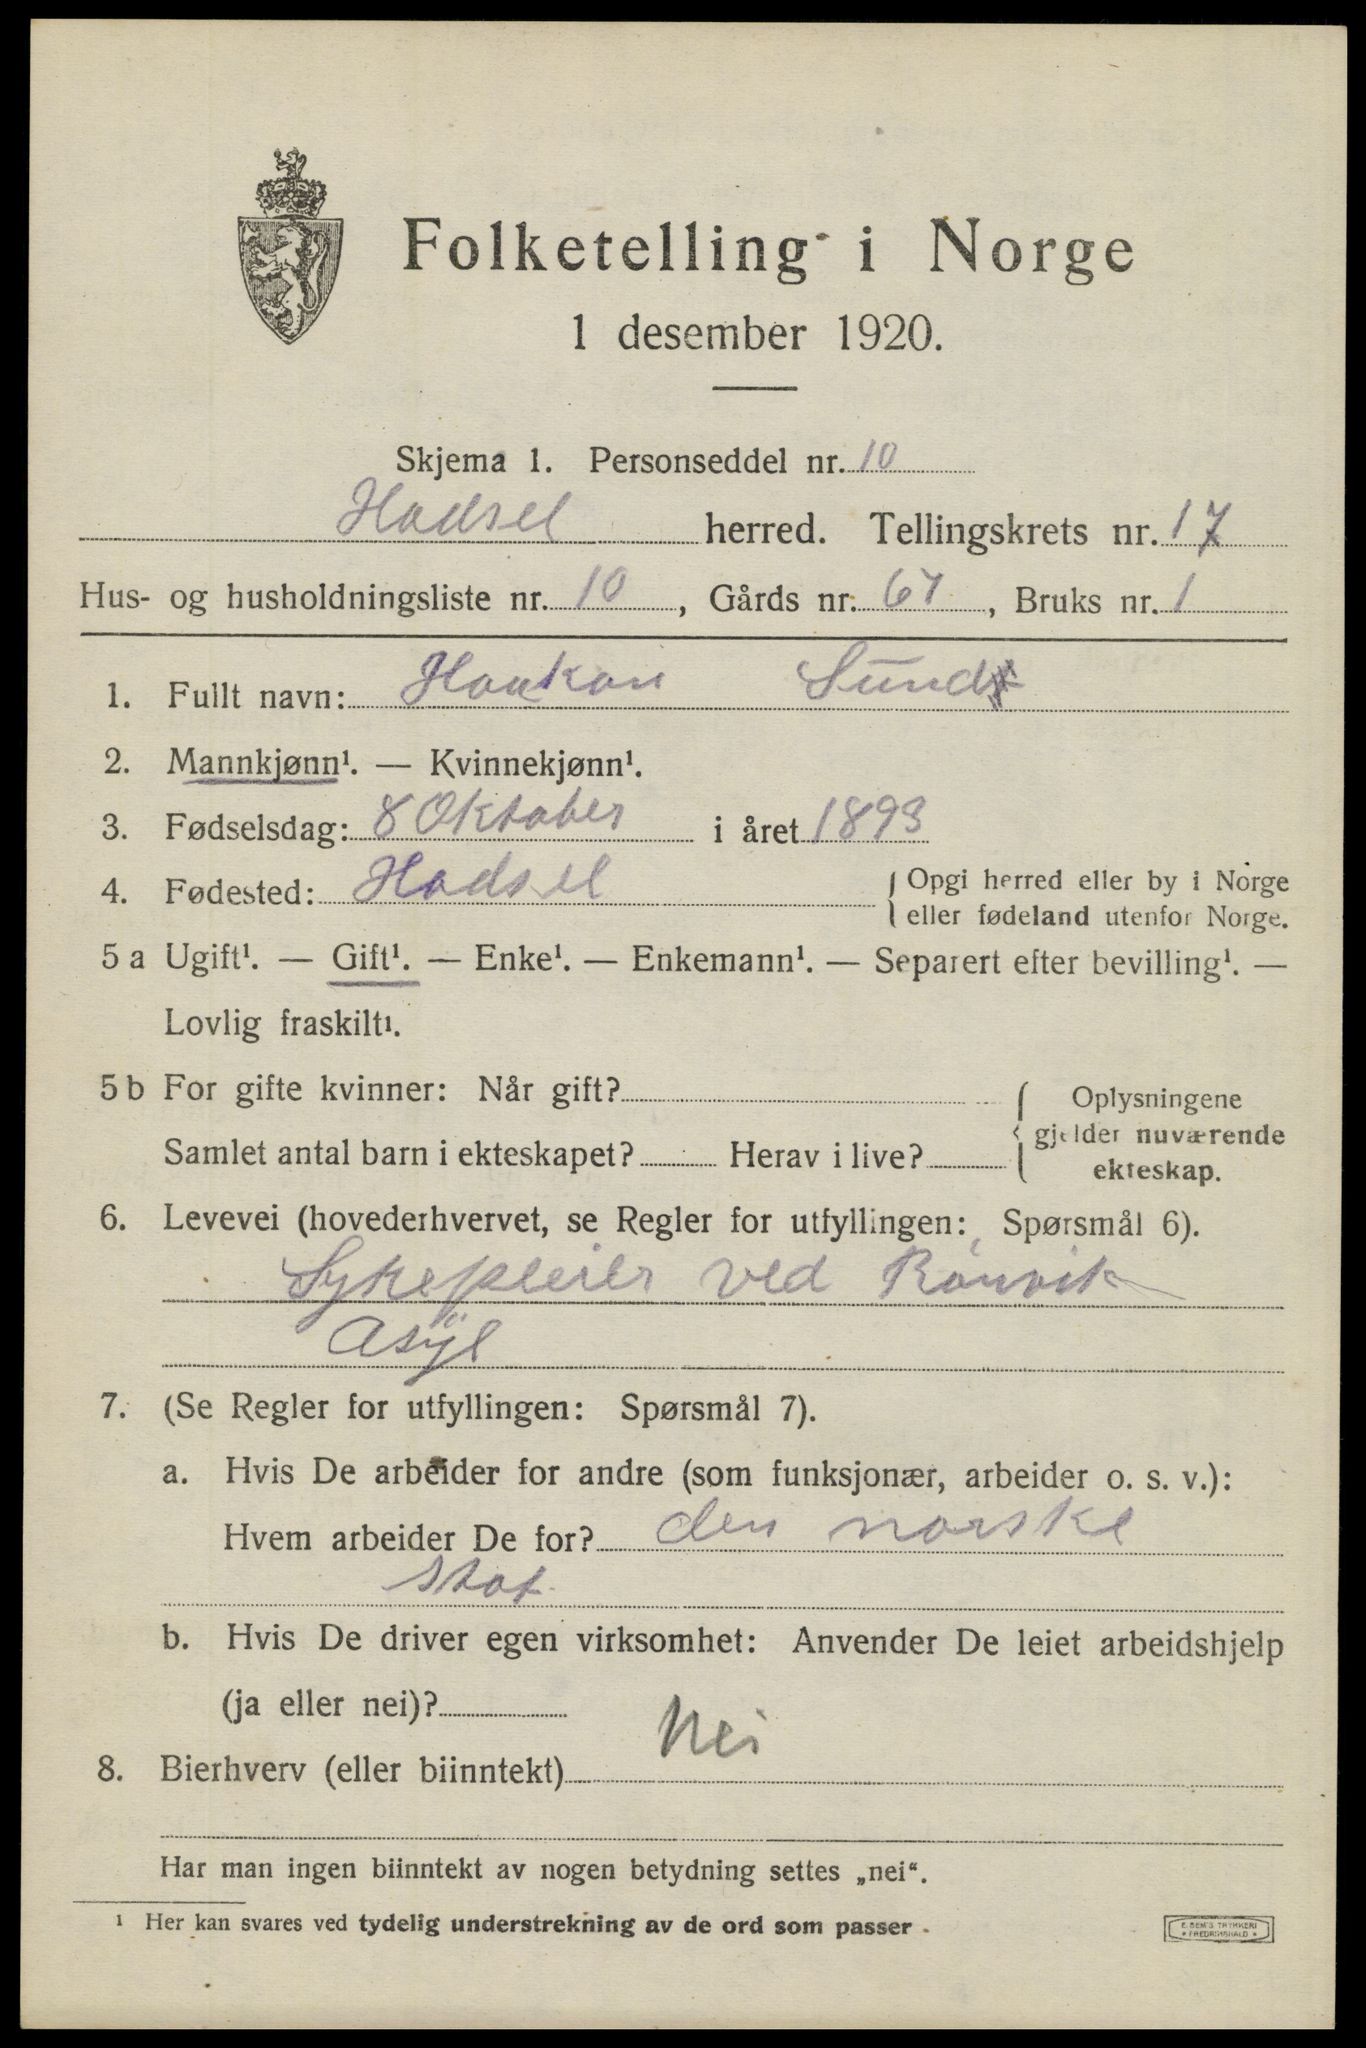 Folketelling i Norge
1 desember 1920.
Skjema 1. Personseddel nr. 10
Hadsel herred. Tellingskrets nr. 17
Hus- og husholdningsliste nr. 10, Gårds nr. 67, Bruks nr. 1
1. Fullt navn: Haakon Sund
2. Mannkjønn¹. — Kvinnekjønn¹.
3. Fødselsdag: 8 Oktober i året 1893
4. Fødested: Hadsel { Opgi herred eller by i Norge
eller fødeland utenfor Norge.
5 a Ugift¹. — Gift¹. — Enke¹. — Enkemann¹. — Separert efter bevilling¹. —
Lovlig fraskilt¹.
5 b For gifte kvinner: Når gift?
Samlet antal barn i ekteskapet? Herav i live?
{ Oplysningene
gjelder nuværende
ekteskap.
6. Levevei (hovederhvervet, se Regler for utfyllingen: Spørsmål 6).
Sykepleier ved Rønvik
Asyl
7. (Se Regler for utfyllingen: Spørsmål 7).
a. Hvis De arbeider for andre (som funksjonær, arbeider o. s. v.):
Hvem arbeider De for? den norske
stat
b. Hvis De driver egen virksomhet: Anvender De leiet arbeidshjelp
(ja eller nei)?
8. Bierhverv (eller biinntekt) Nei
Har man ingen biinntekt av nogen betydning settes „nei“.
¹ Her kan svares ved tydelig understrekning av de ord som passer.
E. SEM'S TRYKKERI
FREDRIKSHALD